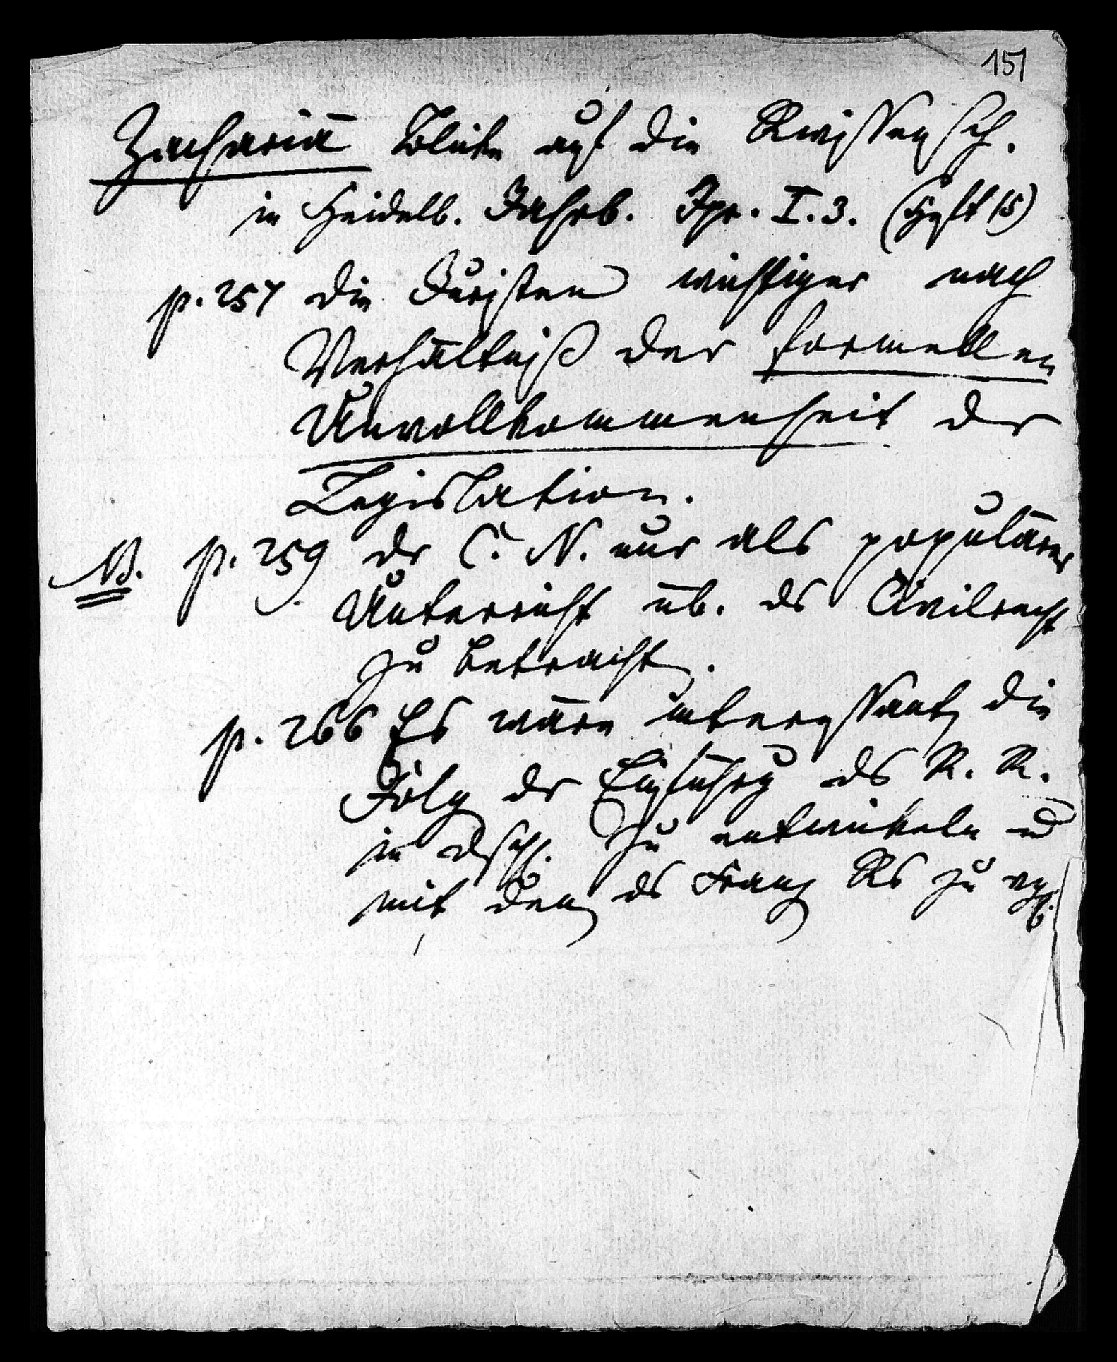 151
Zachariä Blicke auf die Rwissensch.
in Heidelb. Jahrb. Jpr. I. 3. (Heft 15)
p. 257 die Juristen wichtiger nach
Verhältniß der formellen
Unvollkommenheit der
Legislation.
NB. p. 259 der C. N. nur als populärer
Unterricht üb. das Civilrecht
zu betrachten.
p. 266 Es wäre interessant, die
Folgen der Einführung des R. R.
in Dschl. zu entwickeln u
mit denen des Franz Rs zu vgl.